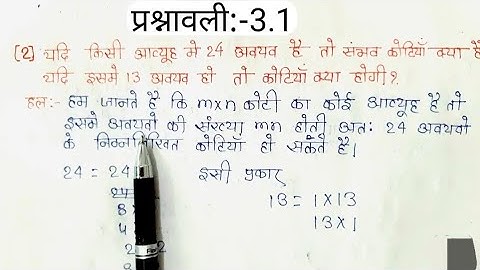 प्रश्नावली:-3.1
(2) यदि किसी आव्यूह मे 24 अवयव है तो संभव कोटियाँ क्या है
यदि इसमे 13 अवयव हो तो कोटियाँ क्या होगी?
हल:- हम जानते है कि m×n कोटी का कोई आव्यूह है तो
इसमे अवयवो की संख्या mn होती अतः 24 अवयवो
के निम्नलिखित कोटियाँ हो सकते है।
24 = 24 इसी प्रकार
8 13 = 1×13
4 13×1
2 2